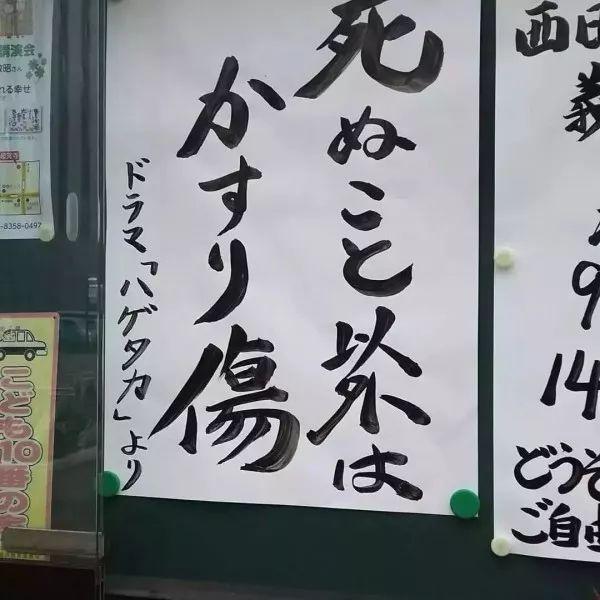 死ぬこと以外は
かすり傷
ドラマ「ハゲタカ」より
講演会
昭さん
れる幸せ
-8358-0497
こども
110番の
西田
義
9
14
どうぞ
ご自由